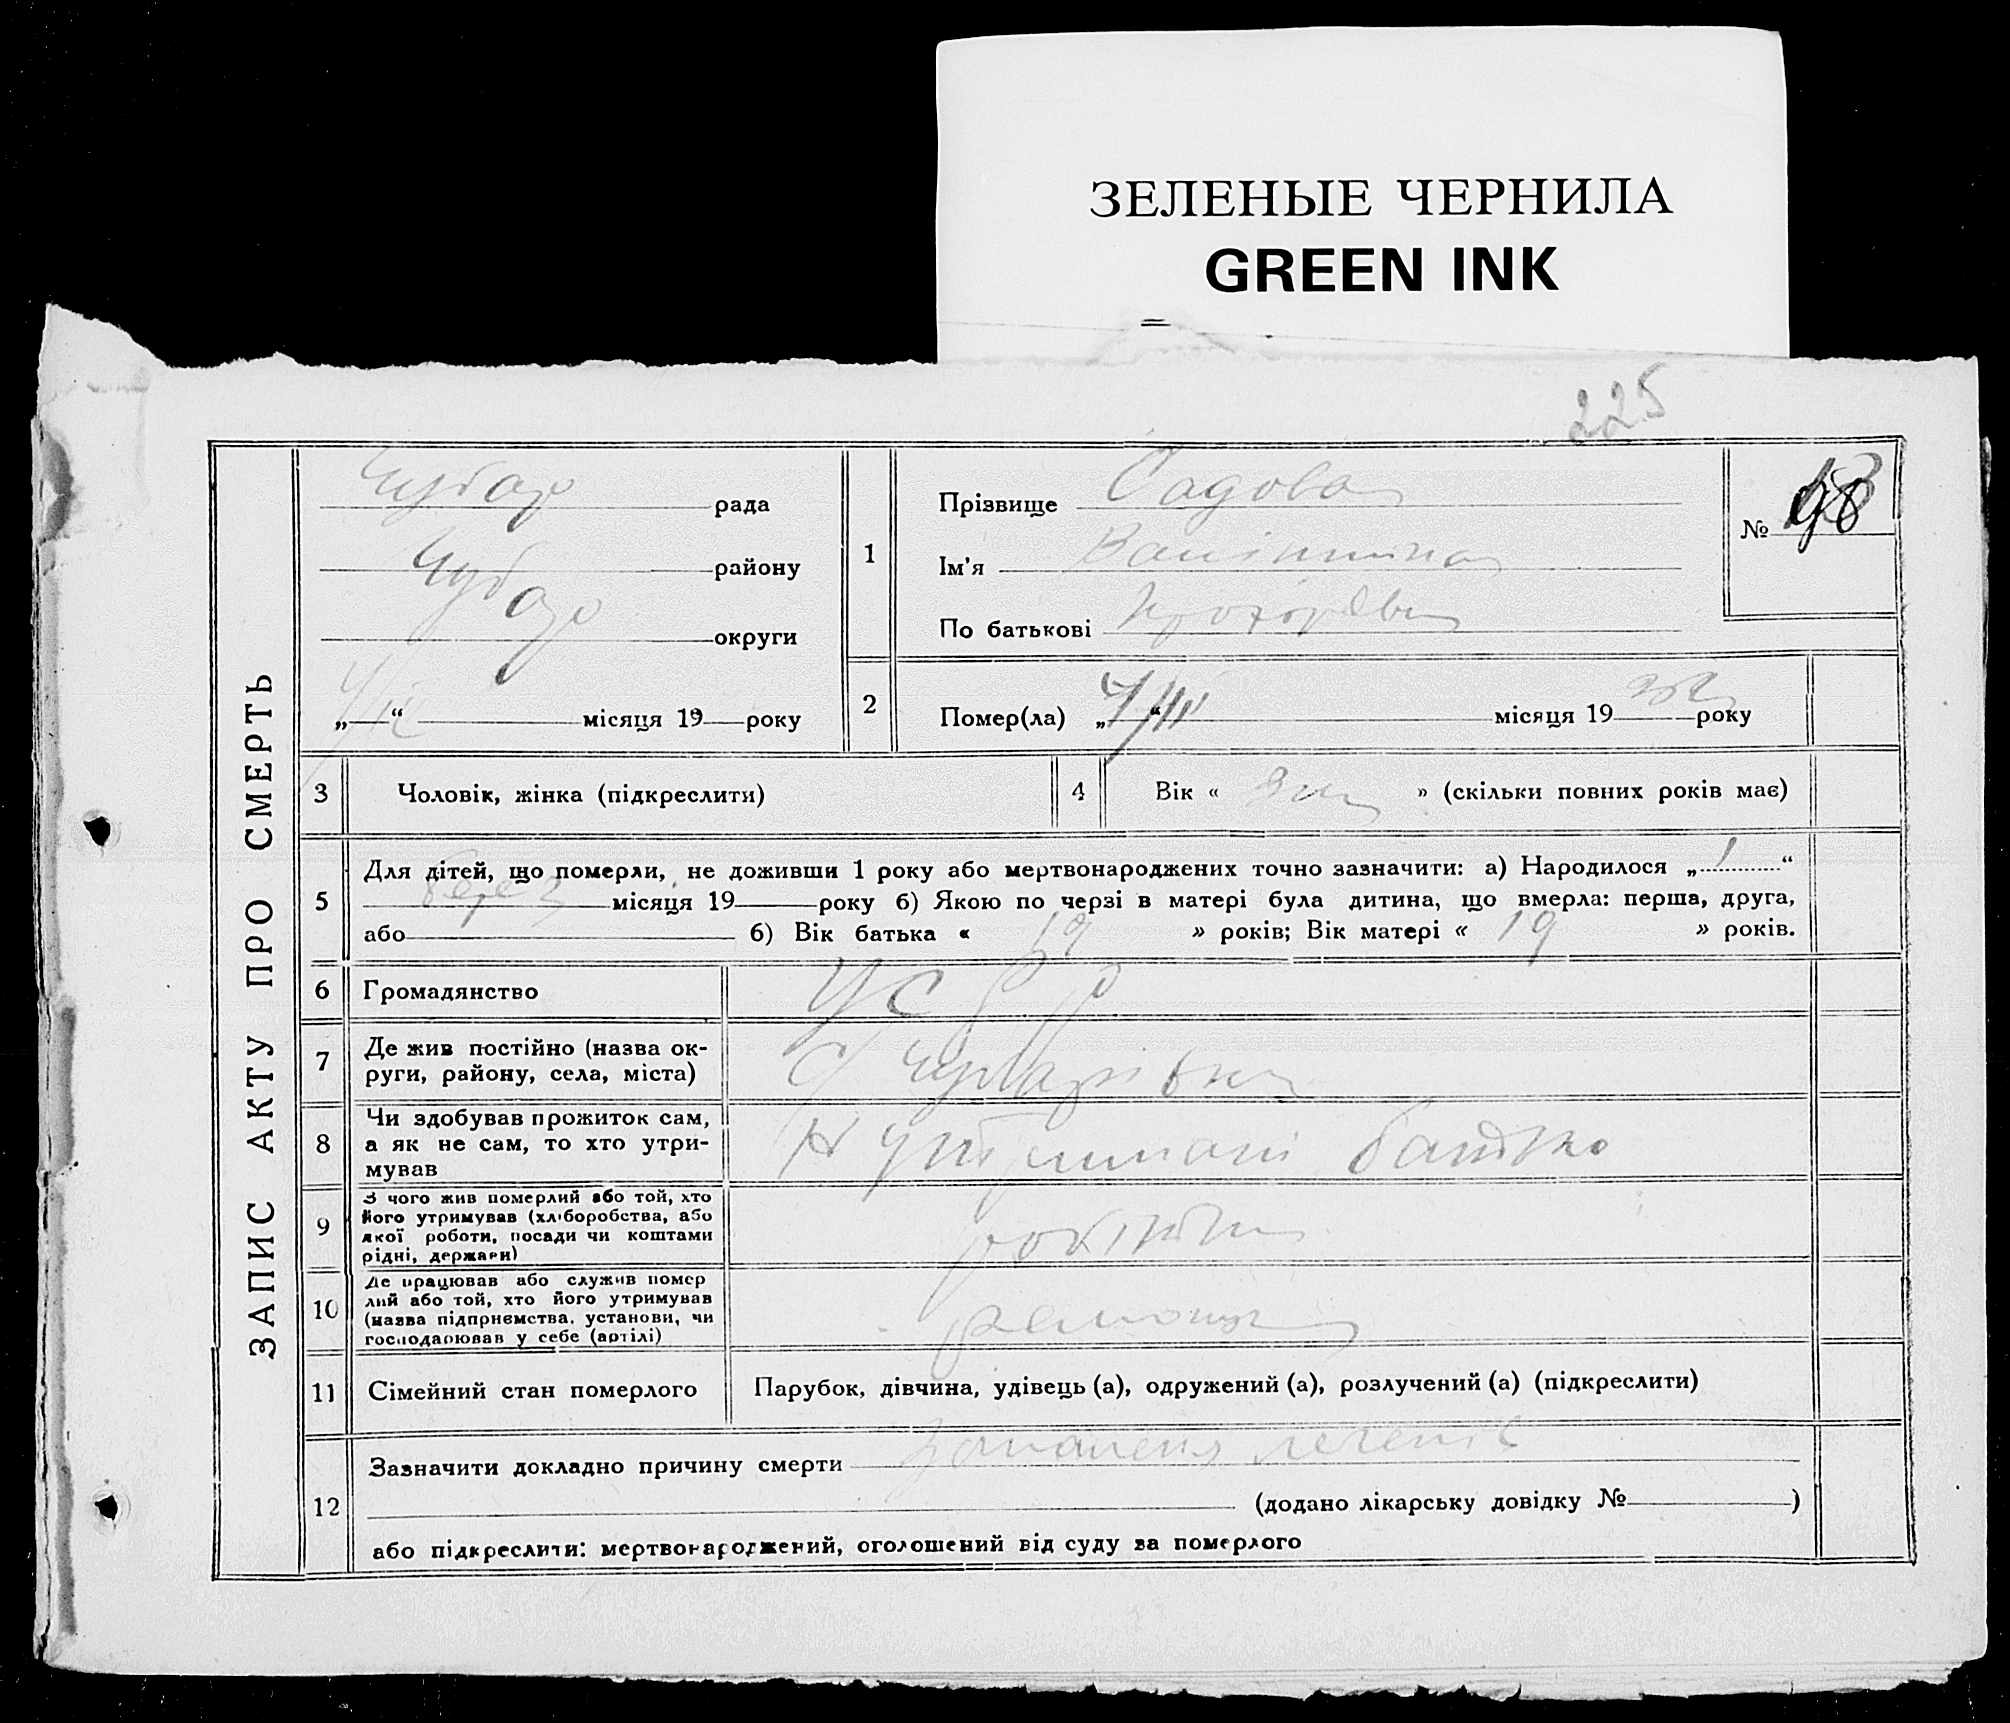 ЗЕЛЕНЫЕ ЧЕРНИЛА
GREEN INK
225
ЗАПИС АКТУ ПРО СМЕРТЬ
Чубар рада
Чубар району
округи
„ “ місяця 19 року
1
Прізвище Садова
Ім'я
По батькові
№ 98
2
Помер(ла) „ “ місяця 19 32 року
3
Чоловік, жінка (підкреслити)
4
Вік « » (скільки повних років має)
5
Для дітей, що померли, не доживши 1 року або мертвонароджених точно зазначити: а) Народилося „ 1 “
берез місяця 19 року б) Якою по черзі в матері була дитина, що вмерла: перша, друга,
або б) Вік батька « 19 » років; Вік матері « 19 » років.
6
Громадянство УСРР
7
Де жив постійно (назва ок-
руги, району, села, міста)
С Чубарівка
8
Чи здобував прожиток сам,
а як не сам, то хто утри-
мував
На утриманні батька
9
З чого жив померлий або той, хто
його утримував (хліборобства, або
якої роботи, посади чи коштами
рідні, держави)
10
Де працював або служив помер
лий або той, хто його утримував
(назва підприємства, установи, чи
господарював у себе (артілі)
11
Сімейний стан померлого
Парубок, дівчина, удівець (а), одружений (а), розлучений (а) (підкреслити)
12
Зазначити докладно причину смерти запаленя легенів
(додано лікарську довідку № )
або підкреслити: мертвонароджений, оголошений від суду за померлого